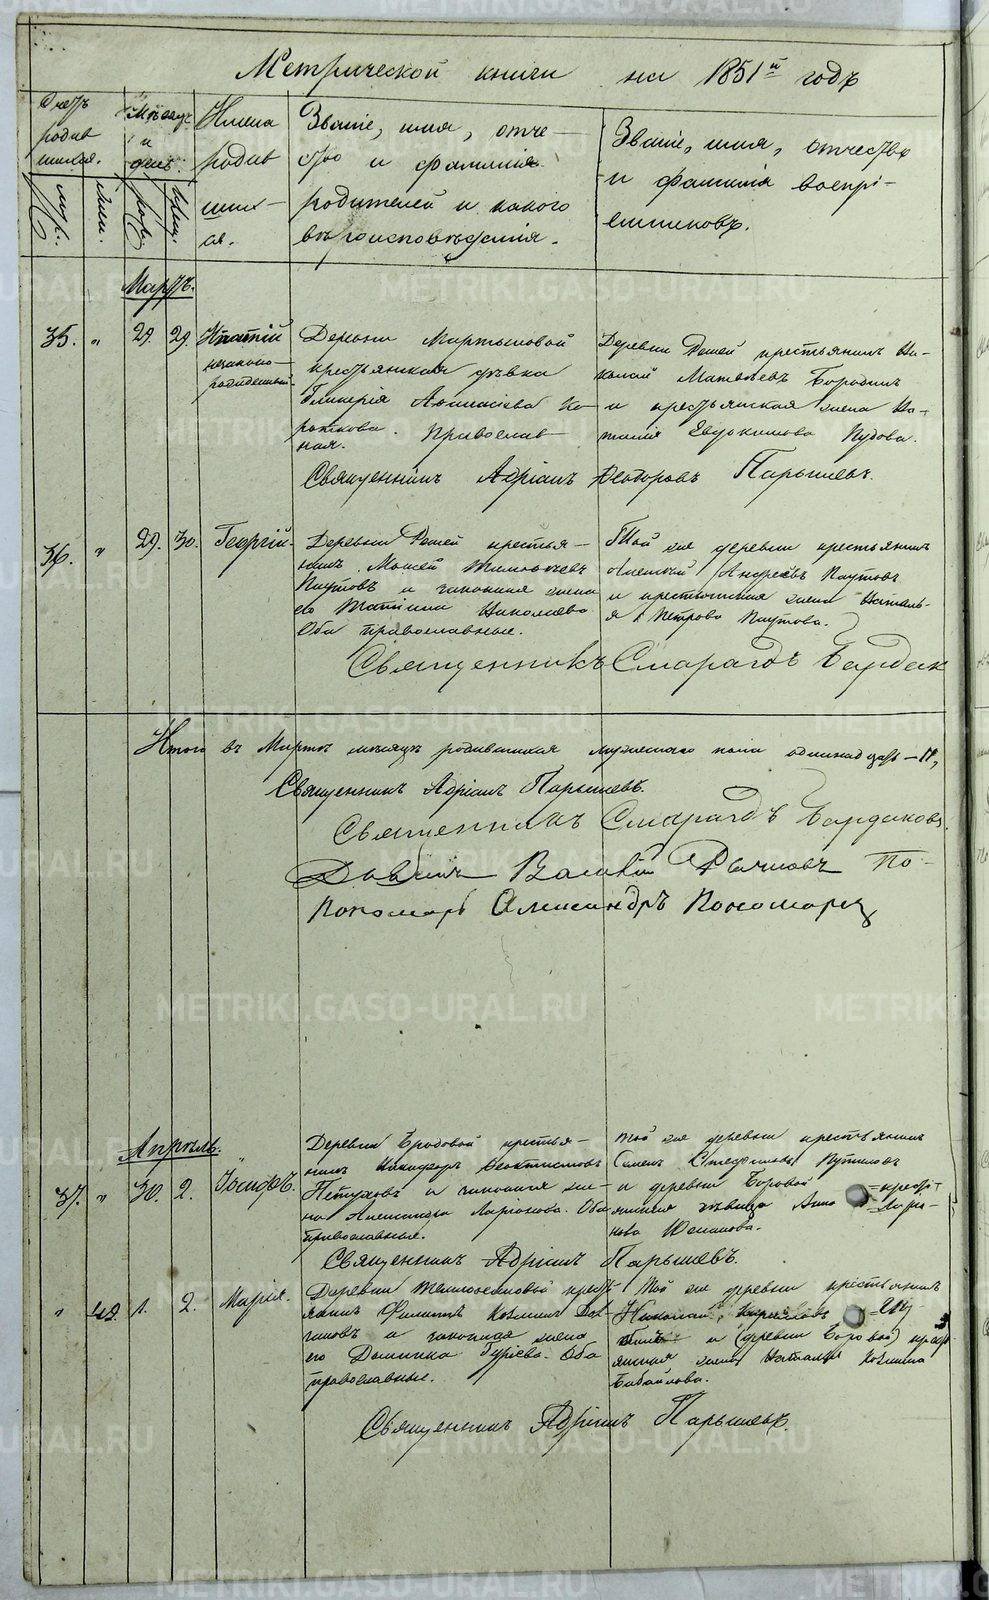 Метрической книги на 1851й годъ
Счетъ родив шихся.
муж. жен.
Мѣсяцъ и день.
рож. крещ.
Имена родив шихъ ся.
Званіе, имя, отче-
ство и фамилія
родителей и какого
вѣроисповѣданія.
Званіе, имя, отчество
и фамилія воспрі-
емниковъ.
Мартъ.
35. " 29. 29. Ипатій
незаконо-
рожденный.
Деревни Мартыновой
крестьянская дѣвка
Гликерія
Православ-
ная.
Деревни крестьянинъ Ни-
колай Матвѣевъ Бородинъ
и крестьянская жена На-
талія Евдокимова Пудова.
Священникъ Адріанъ Ѳеодоровъ Парышевъ.
36. " 29. 30. Георгій.
Деревни крестья-
нинъ Моисей
Паутовъ и законная жена
его Татіана Николаева
Оба православные.
Той же деревни крестьянинъ
Алексѣй Андреевъ Паутовъ
и крестьянская жена Наталь-
я Петрова Паутова.
Священникъ Смарагдъ Бардак
Итого въ Мартѣ мѣсяцѣ родившихся мужескаго пола одинадцать – 11,
Священникъ Адріанъ Парышевъ.
Священникъ Смарагдъ Бардаковъ.
По-
Пономарь Александръ Пономарец
Апрѣль.
37. " 30. 2. Іосифъ.
Деревни Бродовой крестья-
нинъ Никифоръ Ѳеоктистовъ
Пѣтуховъ и законная же-
на Александра Ларіонова. Оба
православные.
Той же деревни крестьянинъ
Семенъ Стефановъ Путиловъ
и деревни Боровой крест-
янская дѣвица Анна Лари-
нова
Священникъ Адріанъ Парышевъ.
" 42. 1. 2. Марія.
Деревни крест-
янинъ Филиппъ Козминъ
и законная жена
его Домника Гуріева. Оба
православные.
Той же деревни крестьянинъ
Николай
и (деревни Боровой) крест-
янская жена Наталья Козмина
Бабайлова.
Священникъ Адріанъ Парышевъ.
METRIKI.GASO-URAL.RU